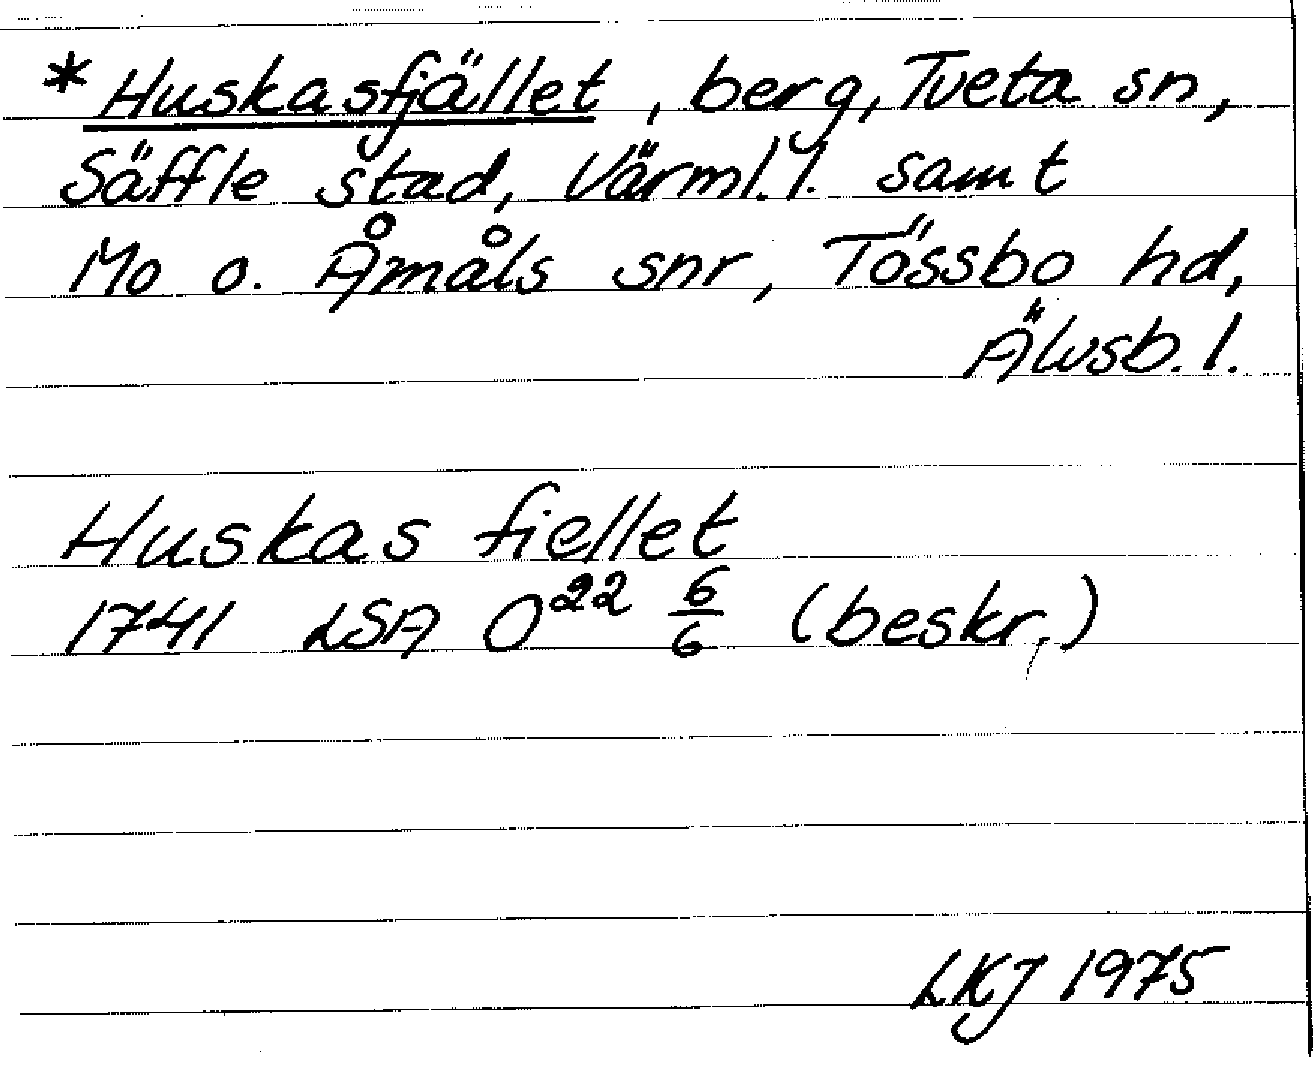 * Huskasfjället, berg, Tveta sn,
Säffle stad, Värml. l. samt
Mo o. Åmåls snr, Tössbo hd,
Älvsb. l.
Huskas fiellet
1741 LSA O²² 6/6 (beskr.)
LKJ 1975